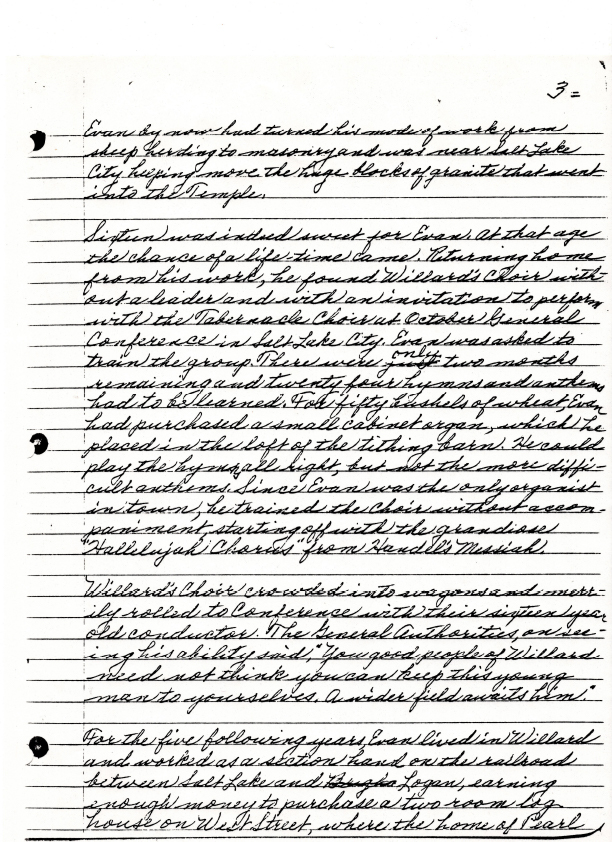 3=
Evan by now had turned his mode of work from
sheep herding to masonry and was near Salt Lake
City helping move the huge blocks of granite that went
into the Temple.
Sixteen was indeed sweet for Evan. At that age
the chance of a life-time came. Returning home
from his work, he found Willard's Choir with-
out a leader and with an invitation to perform
with the Tabernacle Choir at October General
Conference in Salt Lake City. Evan was asked to
train the group. There were only two months
remaining and twenty four hymns and anthems
had to be learned. For fifty bushels of wheat, Evan
had purchased a small cabinet organ, which he
placed in the loft of the tithing barn. He could
play the hymns all right, but not the more diffi-
cult anthems. Since Evan was the only organist
in town, he trained the choir without accom-
paniment, starting off with the grandiose
"Hallelujah Chorus" from Handel's Messiah.
Willard's Choir crowded into wagons and merr-
ily rolled to Conference with their sixteen year
old conductor. The General Authorities, on see-
ing his ability said, "You good people of Willard
need not think you can keep this young
man to yourselves. A wider field awaits him."
For the five following years, Evan lived in Willard
and worked as a section hand on the railroad
between Salt Lake and Logan, earning
enough money to purchase a two room log
house on West Street, where the home of Pearl